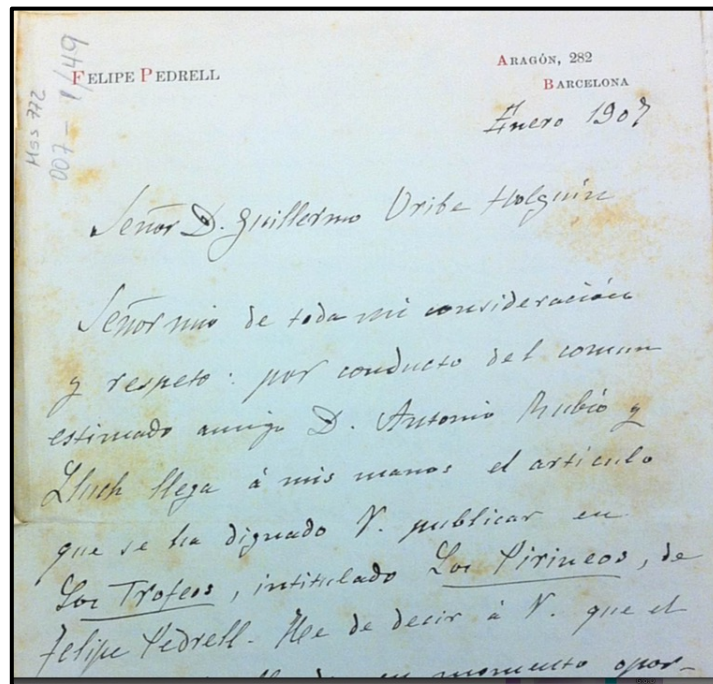 Mss 772
007-1/49
FELIPE PEDRELL
ARAGÓN, 282
BARCELONA
Enero 1907
Señor D. Guillermo Uribe Holguín
Señor mio de toda mi consideración
y respeto: por conducto del comun
estimado amigo D. Antonio Rubió y
Lluch llega á mis manos el artículo
que se ha dignado V. publicar en
Los Trofeos, intitulado Los Pirineos, de
Felipe Pedrell. He de decir á V. que el
momento opor-